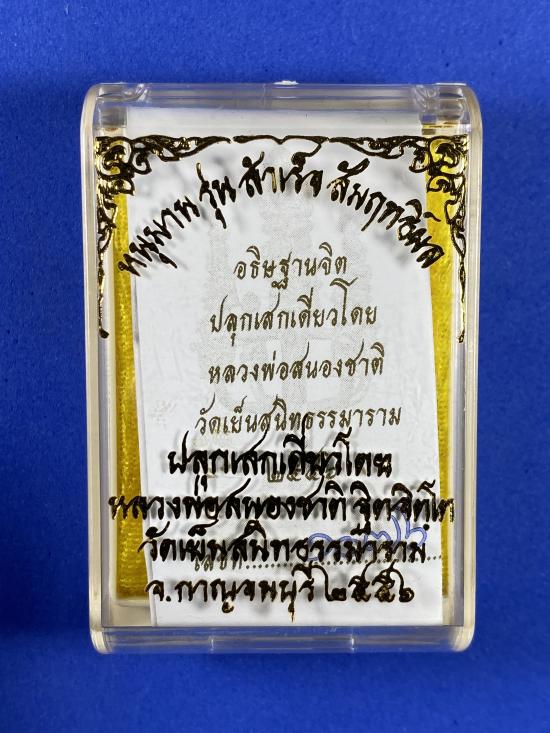 หนุมาน รุ่น สำเร็จ สัมฤทธิ์ผล
อธิษฐานจิต
ปลุกเสกเดี่ยวโดย
หลวงพ่อสนองชาติ
วัดเย็นสนิทธรรมาราม
ปลุกเสกเดี่ยวโดย
หลวงพ่อสนองชาติ ฐิตจิตโต
วัดเย็นสนิทธรรมาราม
จ.กาญจนบุรี ๒๕๕๖